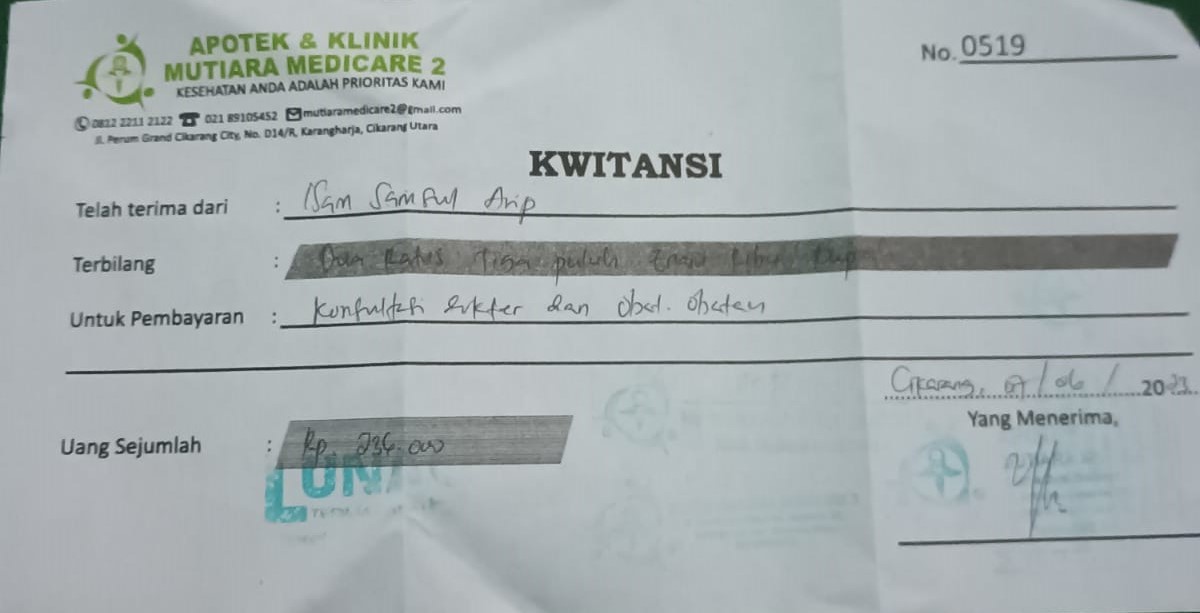 APOTEK & KLINIK
MUTIARA MEDICARE 2
KESEHATAN ANDA ADALAH PRIORITAS KAMI
0812 2211 2122 021 89105452 mutiaramedicare2@gmail.com
Jl. Perum Grand Cikarang City, No. D14/R, Karangharja, Cikarang Utara
No. 0519
KWITANSI
Telah terima dari : Isan Arip
Terbilang : Dua Ratus Tiga puluh Enam Ribu Rup
Untuk Pembayaran : Konsultasi dokter dan obat. obatan
Cikarang, 07/06/ 2023
Yang Menerima,
Uang Sejumlah : Rp. 236.000
LUNA